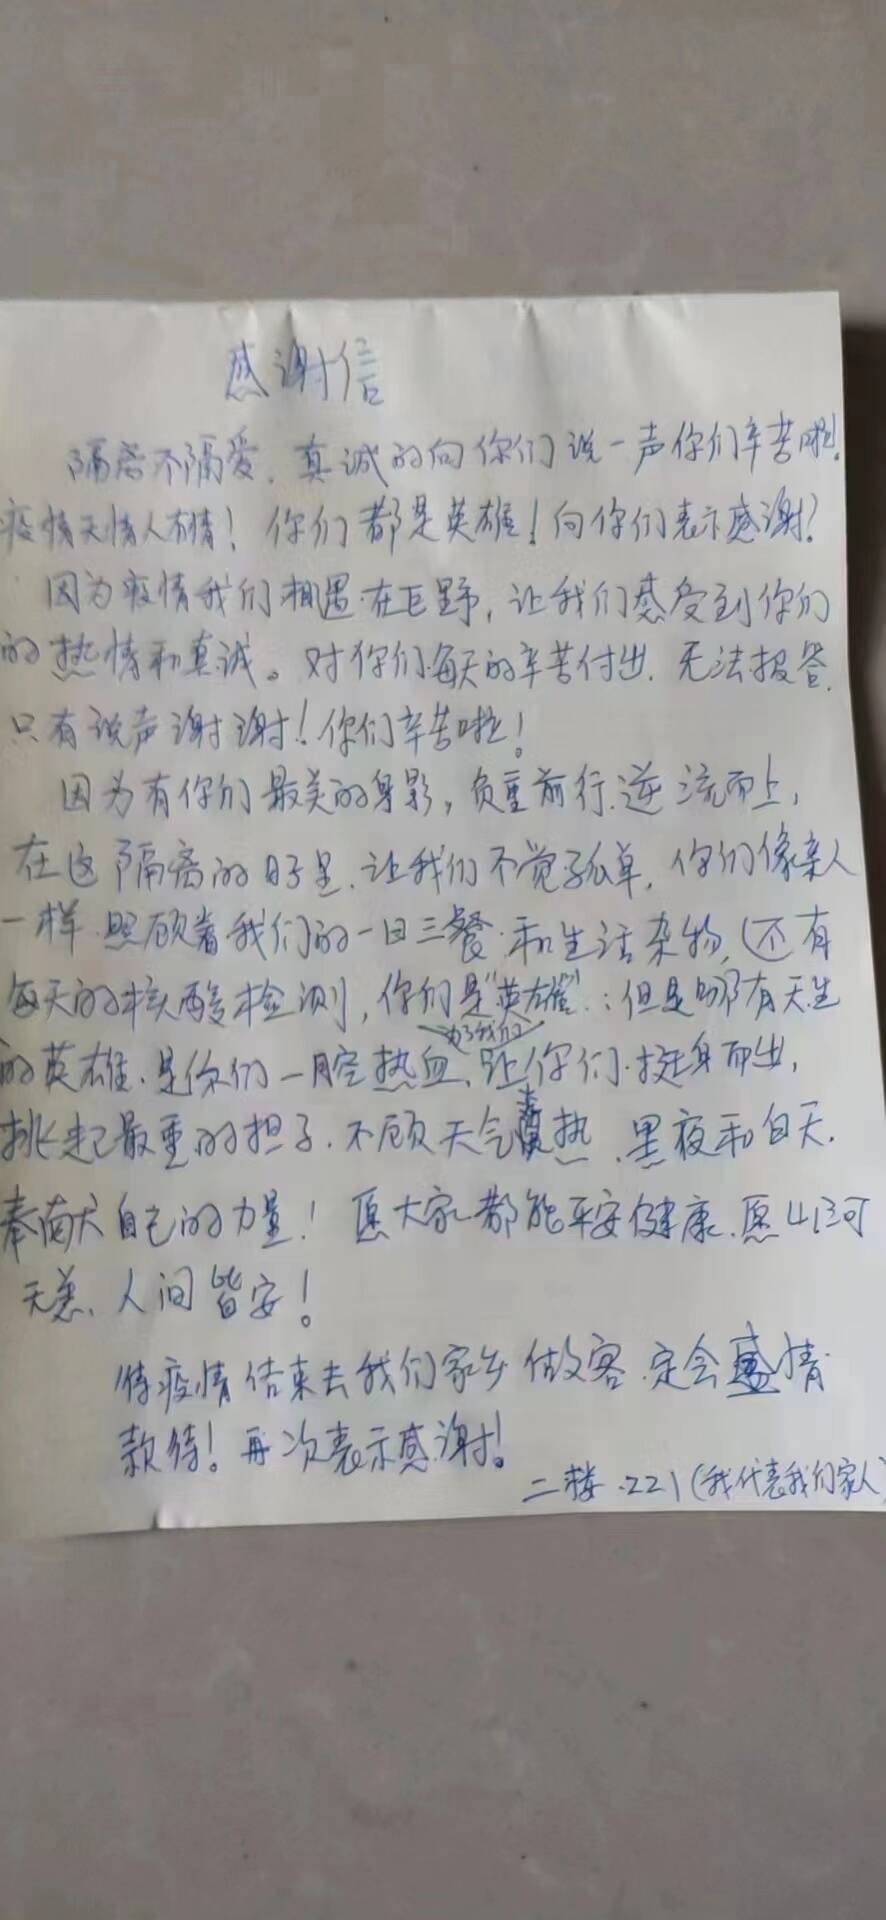 感谢信
隔离不隔爱，真诚的向你们说一声你们辛苦啦！
疫情无情人有情！你们都是英雄！向你们表示感谢！
因为疫情我们相遇在巨野，让我们感受到你们
的热情和真诚。对你们每天的辛苦付出，无法报答，
只有说声谢谢！你们辛苦啦！
因为有你们最美的身影，负重前行、逆流而上，
在这隔离的日子里，让我们不觉孤单，你们像亲人
一样，照顾着我们的一日三餐，和生活杂物，（还有
每天的核酸检测，你们是“英雄”：但是哪有天生
为了我们
的英雄，是你们一腔热血，让你们挺身而出，
挑起最重的担子，不顾天气炎热，黑夜和白天，
奉献自己的力量！愿大家都能平安健康，愿山河
无恙、人间皆安！
待疫情结束去我们家乡做客，定会盛情
款待！再次表示感谢！
二楼·221（我代表我们家人）